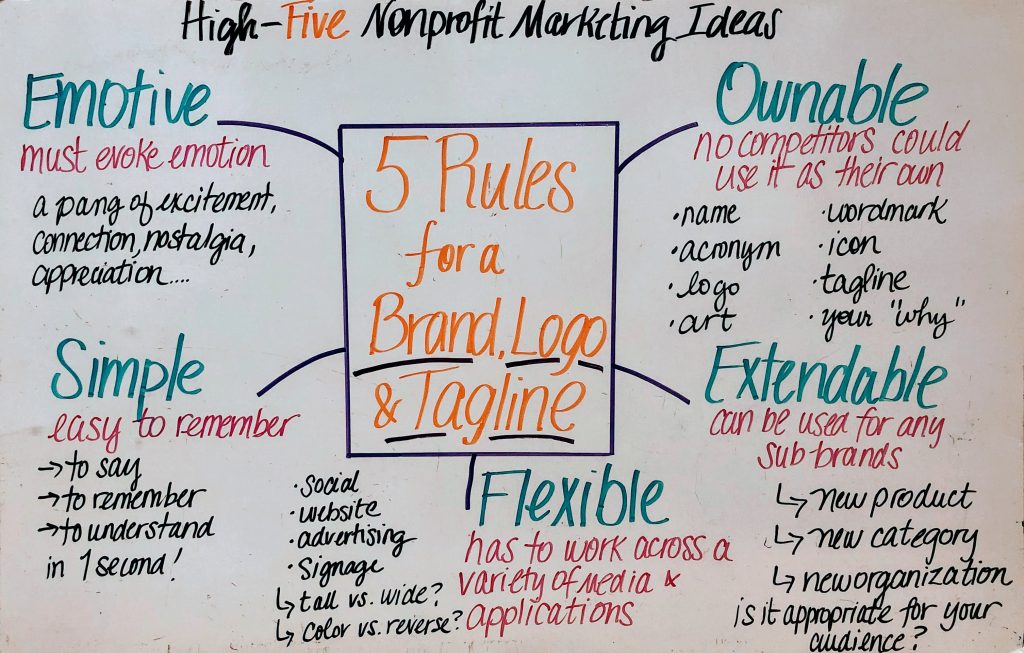 High-Five Nonprofit Marketing Ideas
5 Rules
for a
Brand, Logo
& Tagline
Emotive
must evoke emotion
a pang of excitement,
connection, nostalgia,
appreciation....
Ownable
no competitors could
use it as their own
•name
•acronym
•logo
•art
•wordmark
•icon
•tagline
•your "why"
Simple
easy to remember
→to say
→to remember
→to understand
in 1 second!
•social
•website
•advertising
•Signage
↳ tall vs. wide?
↳ color vs. reverse?
Flexible
has to work across a
variety of media &
applications
Extendable
can be used for any
sub-brands
↳ new product
↳ new category
↳ new organization
is it appropriate for your
audience?